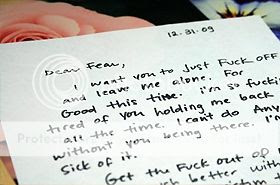 12.31.09
Dear Fear,
I want you to Just Fuck OFF
and leave me alone. For
Good this time. I'm so fucki
tired of you holding me back
all the time. I cant do Any
without you being there. I'm
Sick of it.
Get the Fuck out of
better